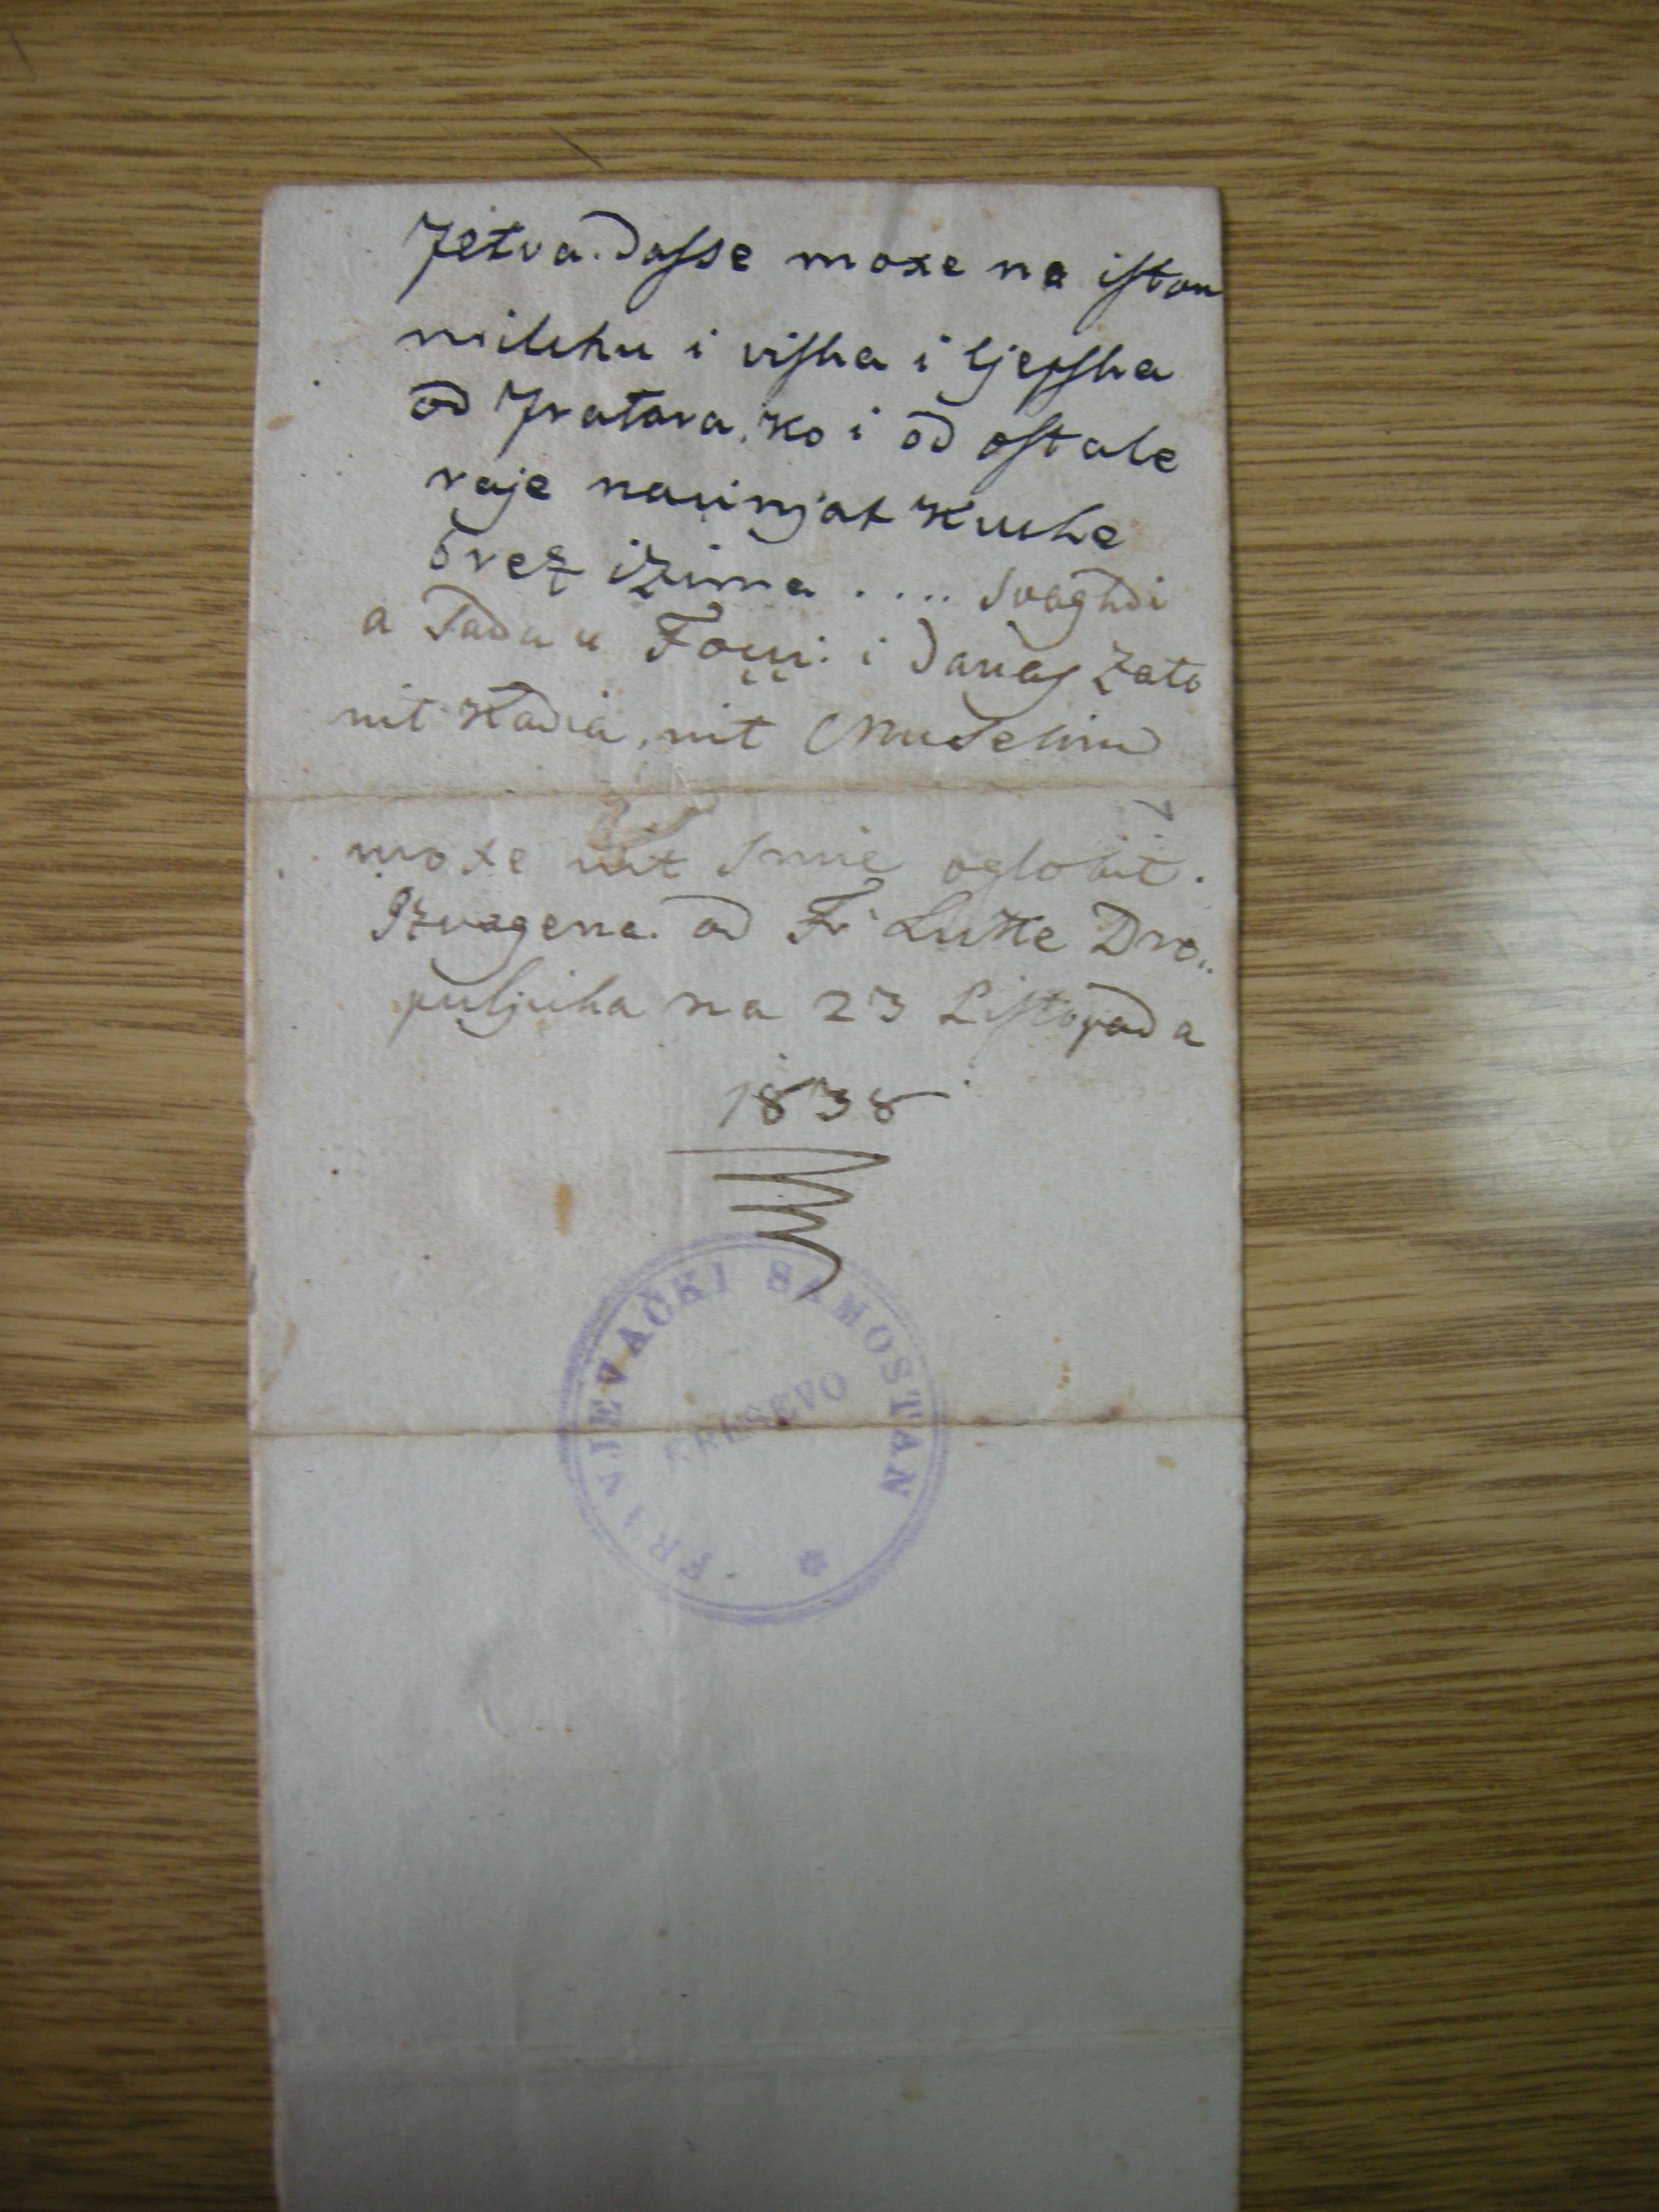 Fetva. dasse moxe na iston
milchu i visha i ljepsha
od Fratara, ko i od ostale
raje nacinjat Kuche
brez izima .... svaghdi
a Tada u Foçi: i danas zato
nit Kadia, nit Muselim
moxe nit smie oglobit.
Izvagena od Fr Luke Dro..
puljicha na 23 Listopada
1838
FRANJEVAČKI SAMOSTAN
KREŠEVO